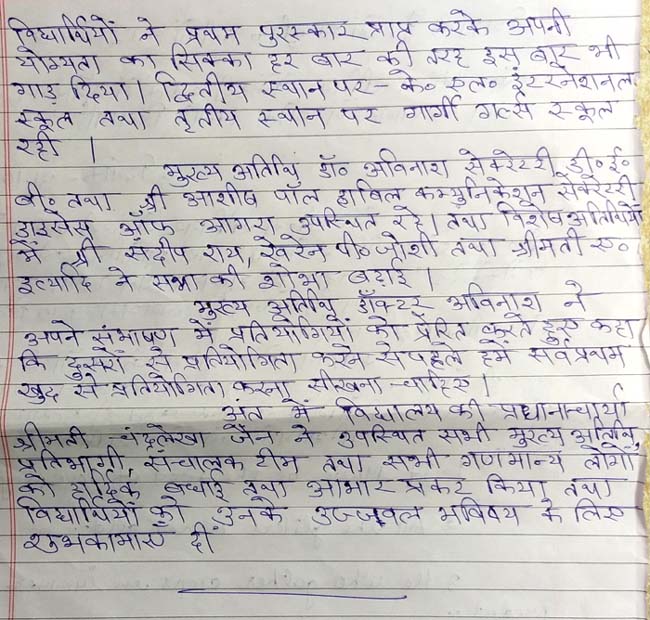 विद्यार्थियों ने प्रथम पुरस्कार प्राप्त करके अपनी
योग्यता का सिक्का हर बार की तरह इस बार भी
गाड़ दिया। द्वितीय स्थान पर- के० एल० इंटरनेशनल
स्कूल तथा तृतीय स्थान पर गार्गी गर्ल्स स्कूल
रही ।
मुख्य अतिथि डॉ० अविनाश सेक्रेटरी डी० ई०
बी० तथा श्री आशीष पॉल हाबिल कम्युनिकेशन सेक्रेटरी
डाइसेस ऑफ आगरा उपस्थित रहे। तथा विशेष अतिथियों
में श्री संदीप राय, रेवरेन पी० जोशी तथा श्रीमती ए०
इत्यादि ने सभा की शोभा बढ़ाई ।
मुख्य अतिथि डॉक्टर अविनाश ने
अपने संभाषण में प्रतियोगियों को प्रेरित करते हुए कहा
कि दुसरों से प्रतियोगिता करने से पहले हमें सर्वप्रथम
खुद से प्रतियोगिता करना सीखना चाहिए।
अंत में विद्यालय की प्रधानाचार्या
श्रीमती चंद्रलेखा जैन ने उपस्थित सभी मुख्य अतिथि,
प्रतिभागी, संचालक टीम तथा सभी गणमान्य लोगों
को हार्दिक बधाई तथा आभार प्रकट किया तथा
विद्यार्थियों को उनके उज्जवल भविषय के लिए
शुभकामाएं दीं